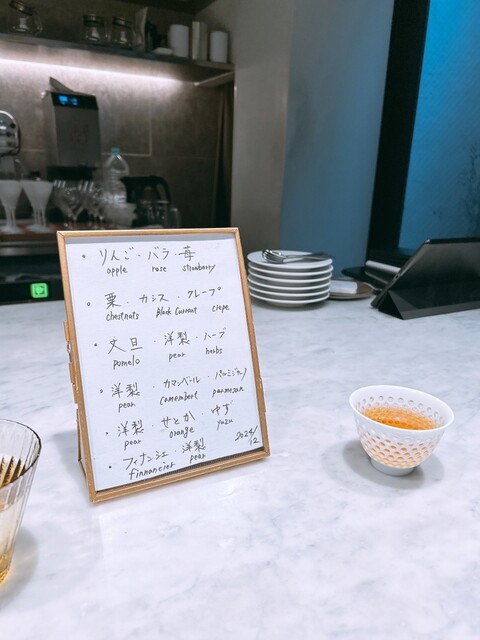 ・りんご・バラ・苺
apple rose strawberry
・栗・カシス・クレープ
chestnuts Black Currant crepe
・文旦・洋梨・ハーブ
pomelo pear herbs
・洋梨・カマンベール・パルミジャーノ
pear camembert parmesan
・洋梨・せとか・ゆず
pear orange yuzu
・フィナンシェ・洋梨
finnancier pear
2024/12